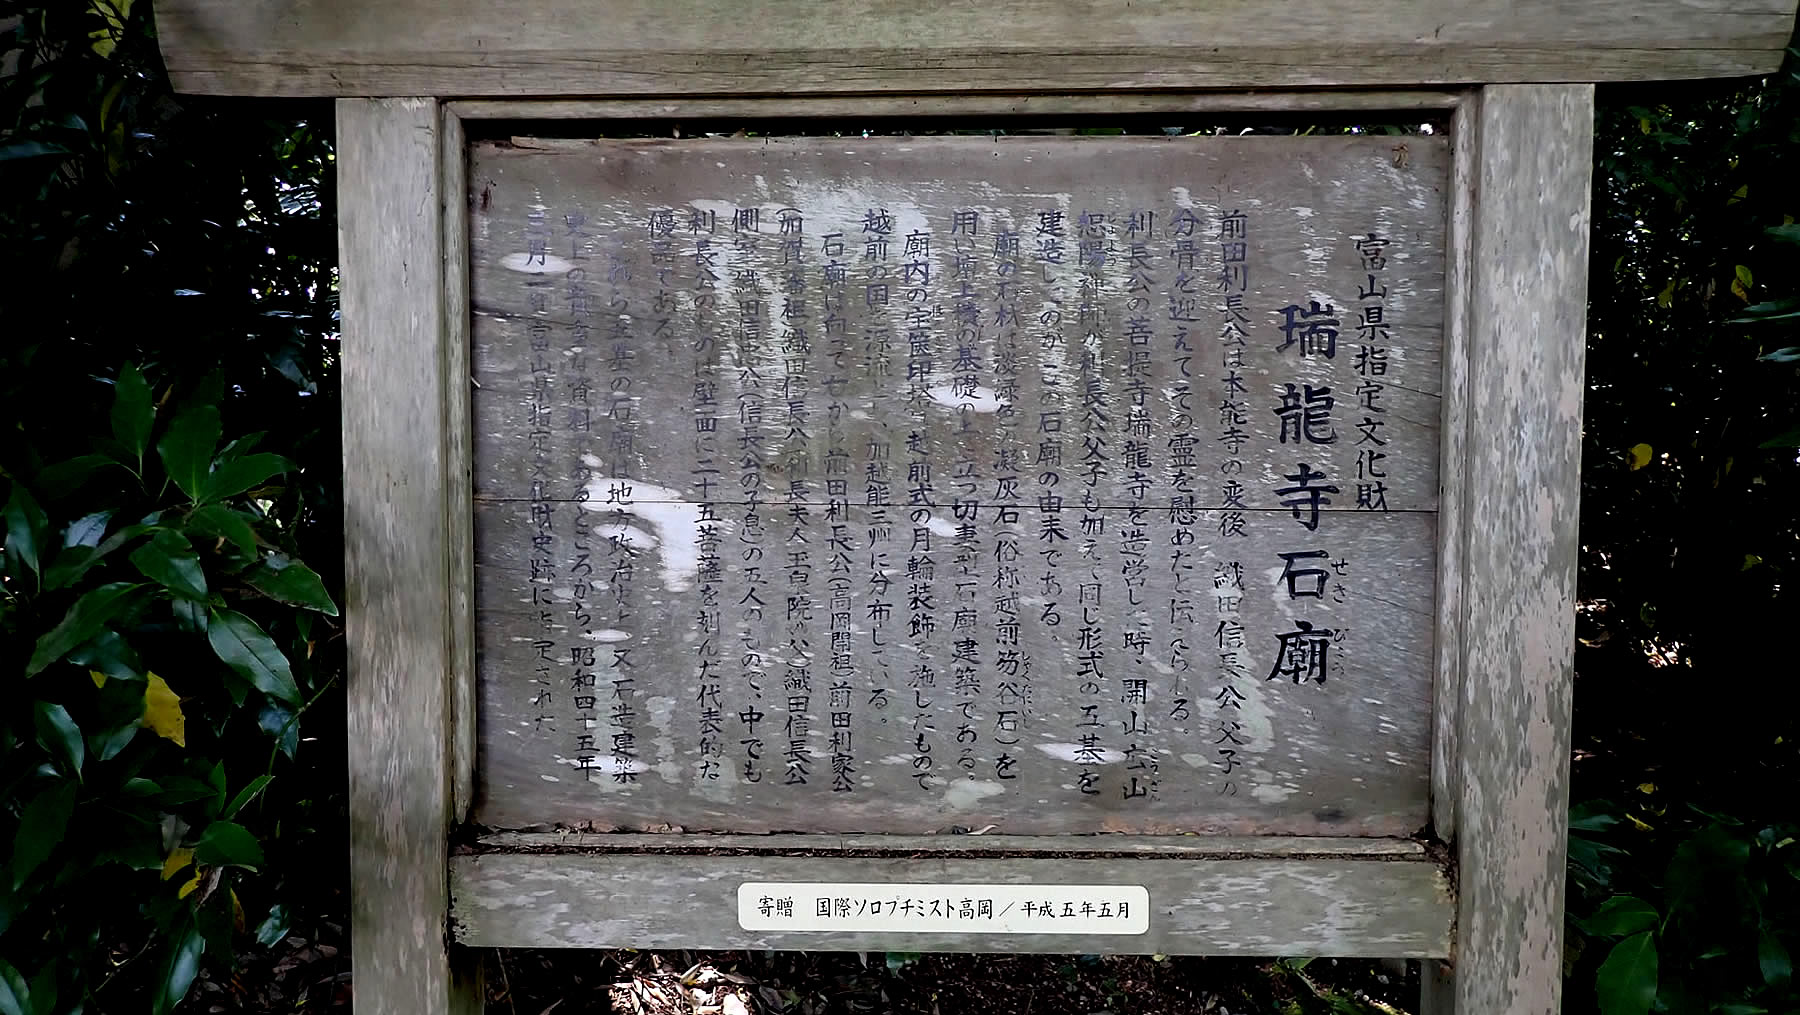 富山県指定文化財
瑞龍寺石廟
せきびょう
前田利長公は本能寺の変後 織田信長公父子の
分骨を迎えてその霊を慰めたと伝えられる。
利長公の菩提寺瑞龍寺を造営した時、開山広山
こうざん
恕陽禅師が利長公父子も加えて同じ形式の五基を
じょよう
建造したのがこの石廟の由来である。
廟の石材は淡緑色の凝灰石(俗称越前笏谷石)を
しゃくだにいし
用い壇上積の基礎の上に立つ切妻型石廟建築である。
廟内の宝篋印塔は越前式の月輪装飾を施したもので
越前の国を源流とし、加越能三州に分布している。
石廟は向って七から前田利長公(高岡開祖)前田利家公
(加賀藩祖)織田信長公 利長夫人玉泉院の父)織田信長公
側室 織田信忠公(信長公の子息)の五人のもので、中でも
利長公のものは壁面に二十五菩薩を刻んだ代表的な
優品である
これら五基の石廟は地方政治史上 又石造建築
史上の貴重な資料であるところから、昭和四十五年
三月二日富山県指定文化財史跡に指定された
寄贈 国際ソロプチミスト高岡/平成五年五月